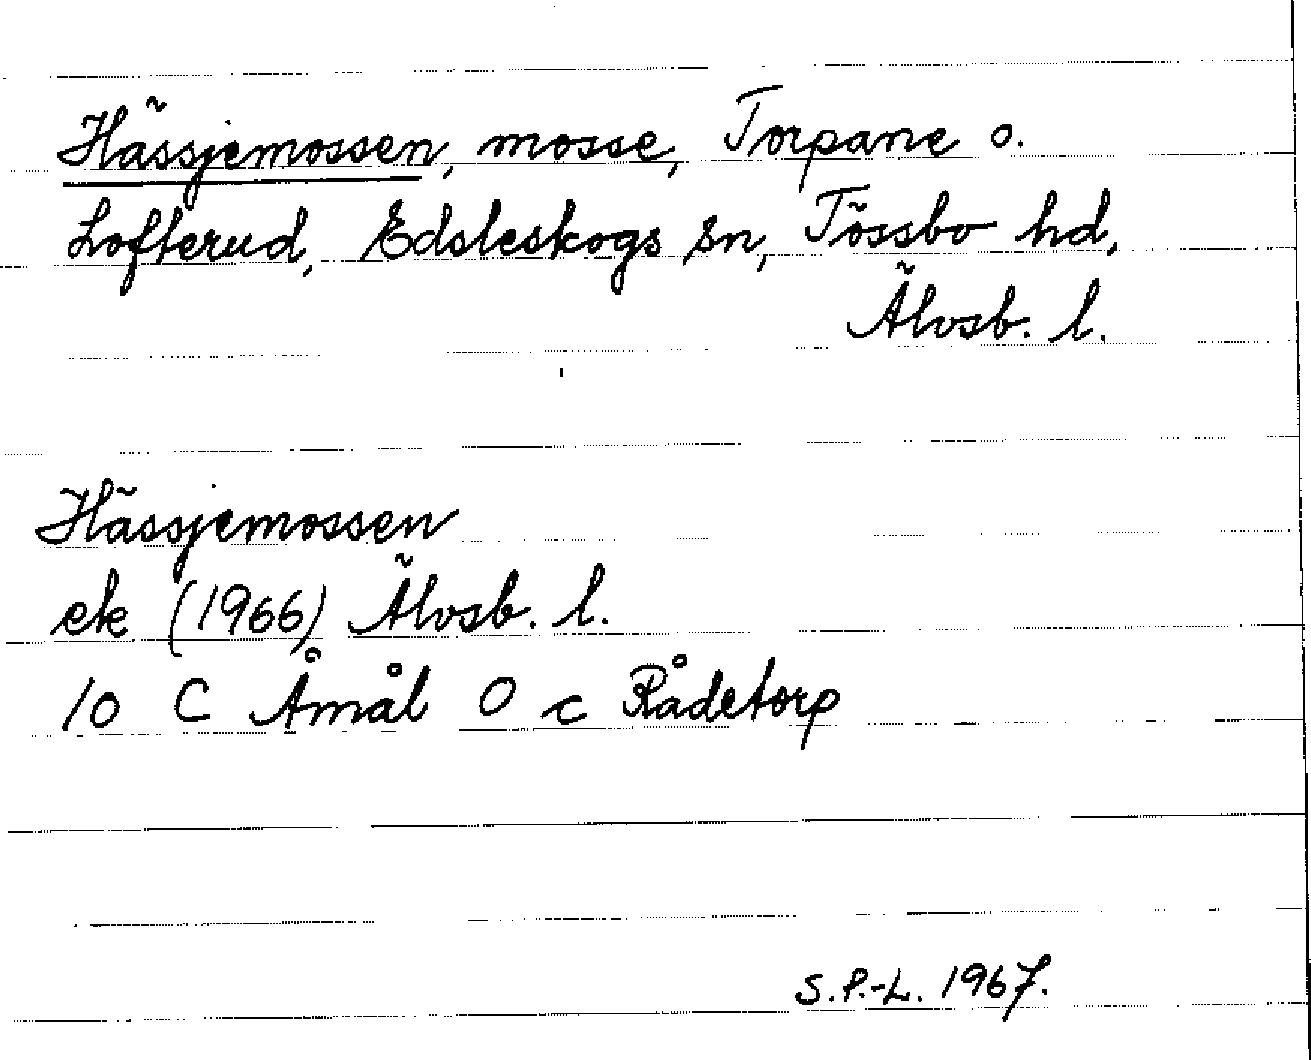 Hässjemossen, mosse, Torpane o.
Lofterud, Edsleskogs sn, Tössbo hd,
Älvsb. l.
Hässjemossen
ek (1966) Älvsb. l.
10 C Åmål O c Rådetorp
S.P.-L. 1967.